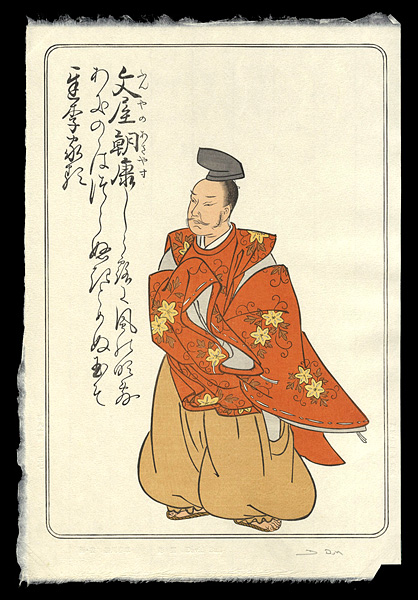 ふんやのあさやす
文屋朝康しら露に風の吹しく
あきのゝはつらぬきとめぬ玉そ
ちりける